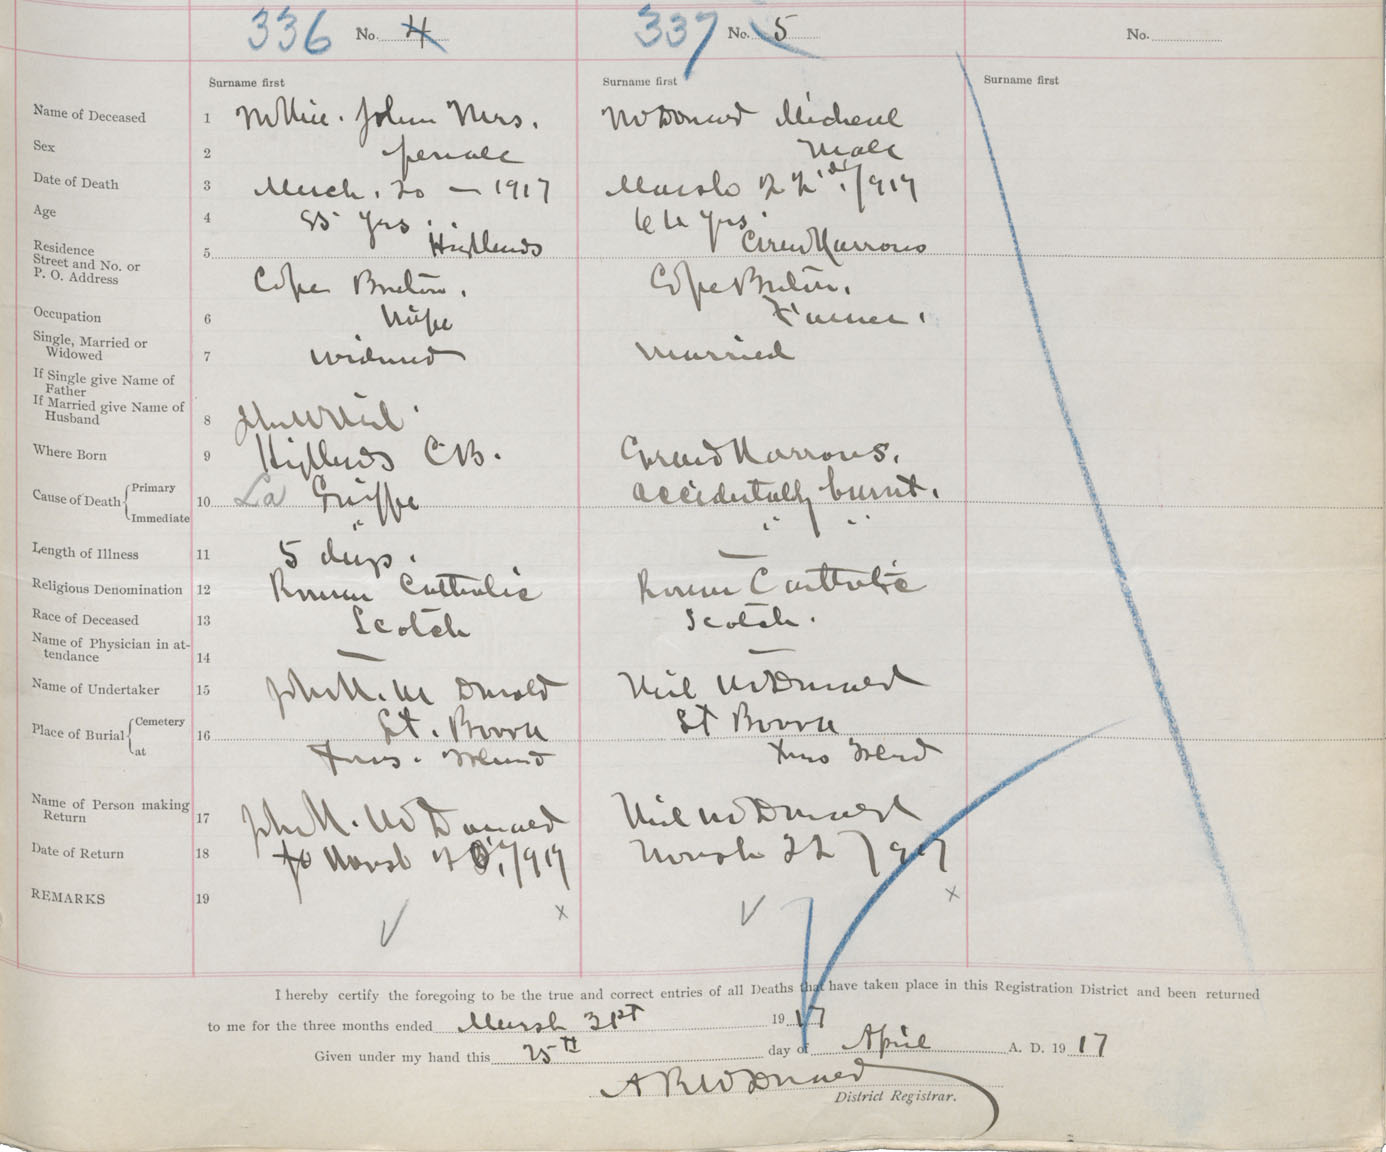 336 No. 4 337 No. 5 No.
Surname first Surname first Surname first
Name of Deceased 1 John Mrs. McDonald Micheal
Sex 2 female Male
Date of Death 3 March. 20 — 1917 March 22nd, 1917
Age 4 85 yrs. 64 yrs.
Residence Street and No. or P. O. Address 5 Highlands Grand Narrows
Cape Breton. Cape Breton.
Occupation 6 Wife Farmer.
Single, Married or Widowed 7 widowed married
If Single give Name of Father
If Married give Name of Husband 8
Where Born 9 Highlands C.B. Grand Narrows.
Cause of Death { Primary 10 La Grippe accidentally burnt.
Immediate " " "
Length of Illness 11 5 days. —
Religious Denomination 12 Roman Catholic Roman Catholic
Race of Deceased 13 Scotch Scotch.
Name of Physician in attendance 14 — —
Name of Undertaker 15 John McDonald Neil McDonald
Place of Burial { Cemetery 16 St. St
at Island Island
Name of Person making Return 17 McDonald Neil McDonald
Date of Return 18 March 20, 1917 March 22 1917
REMARKS 19
x x
I hereby certify the foregoing to be the true and correct entries of all Deaths that have taken place in this Registration District and been returned
to me for the three months ended March 31st 1917
Given under my hand this 25th day of April A. D. 1917
A R McDonald
District Registrar.